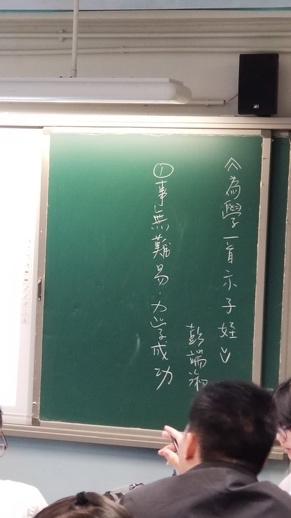 《為學一首示子姪》
彭端淑
①事無難易：力学成功